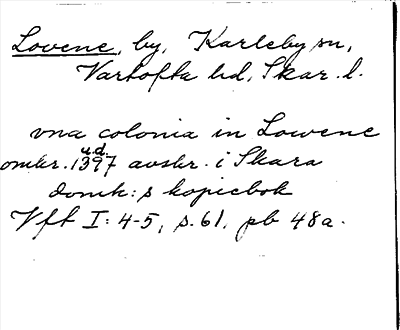 Lovene, by, Karleby sn,
Vartofta hd, Skar. l.
vna colonia in Lowene
u.d.
omkr. 1397 avskr. i Skara
domk:s kopiebok
Vft I: 4-5, s. 61, pb 48a.